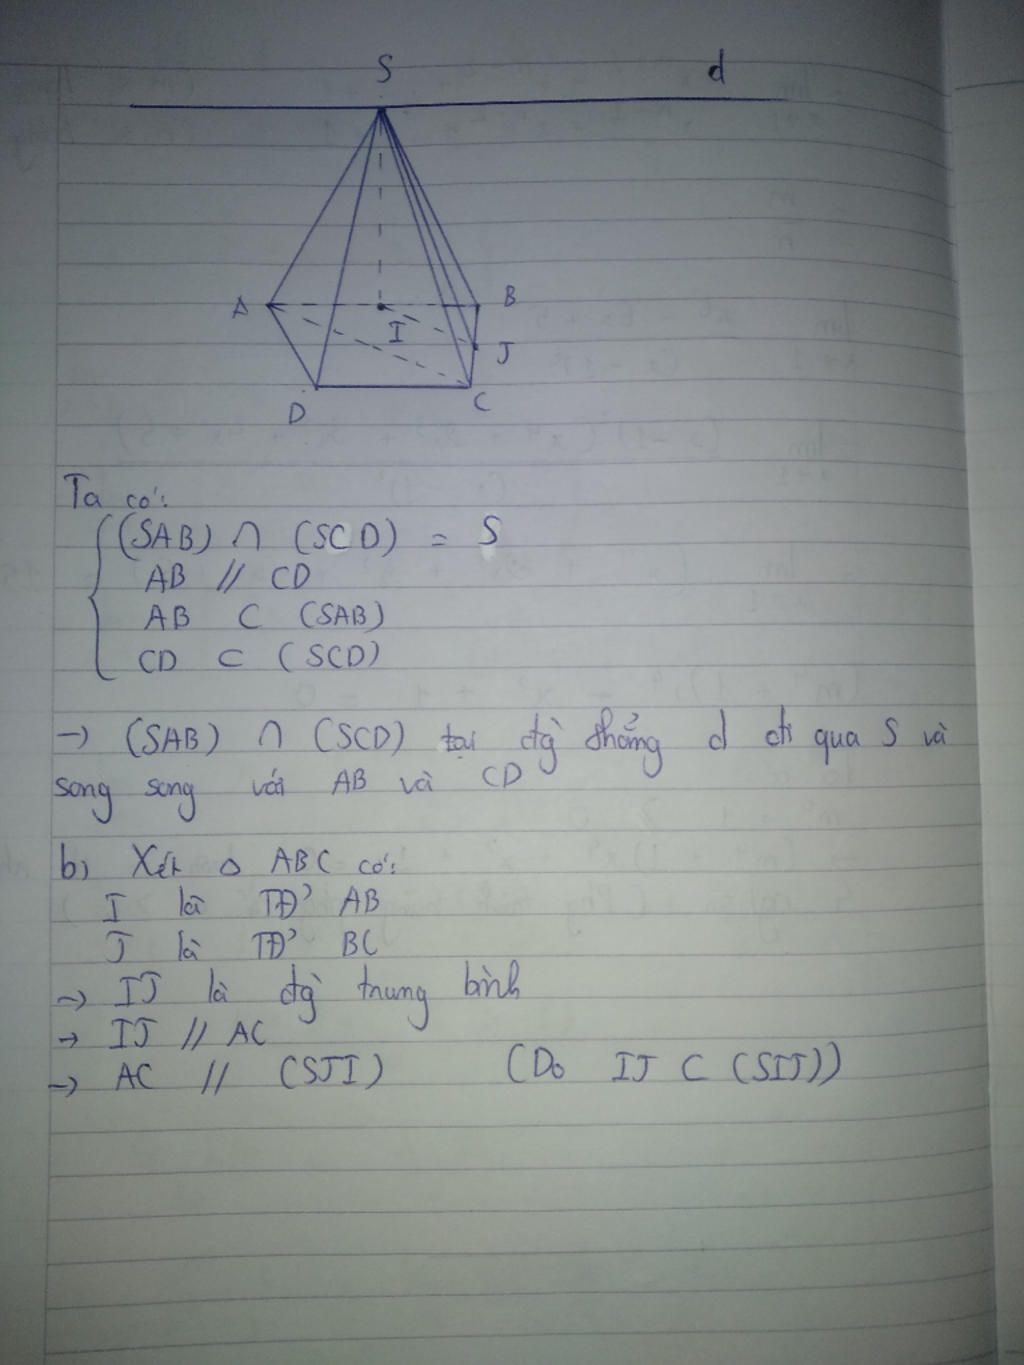 S
d
A
B
I
J
D
C
Ta có:
(SAB) ∩ (SCD) = S
AB // CD
AB ⊂ (SAB)
CD ⊂ (SCD)
→ (SAB) ∩ (SCD) tại đg̀ thẳng d đi qua S và
song song với AB và CD
b) Xét △ ABC có:
I là TĐ' AB
J là TĐ' BC
→ IJ là đg̀ trung bình
→ IJ // AC
→ AC // (SJI) (Do IJ ⊂ (SIJ))